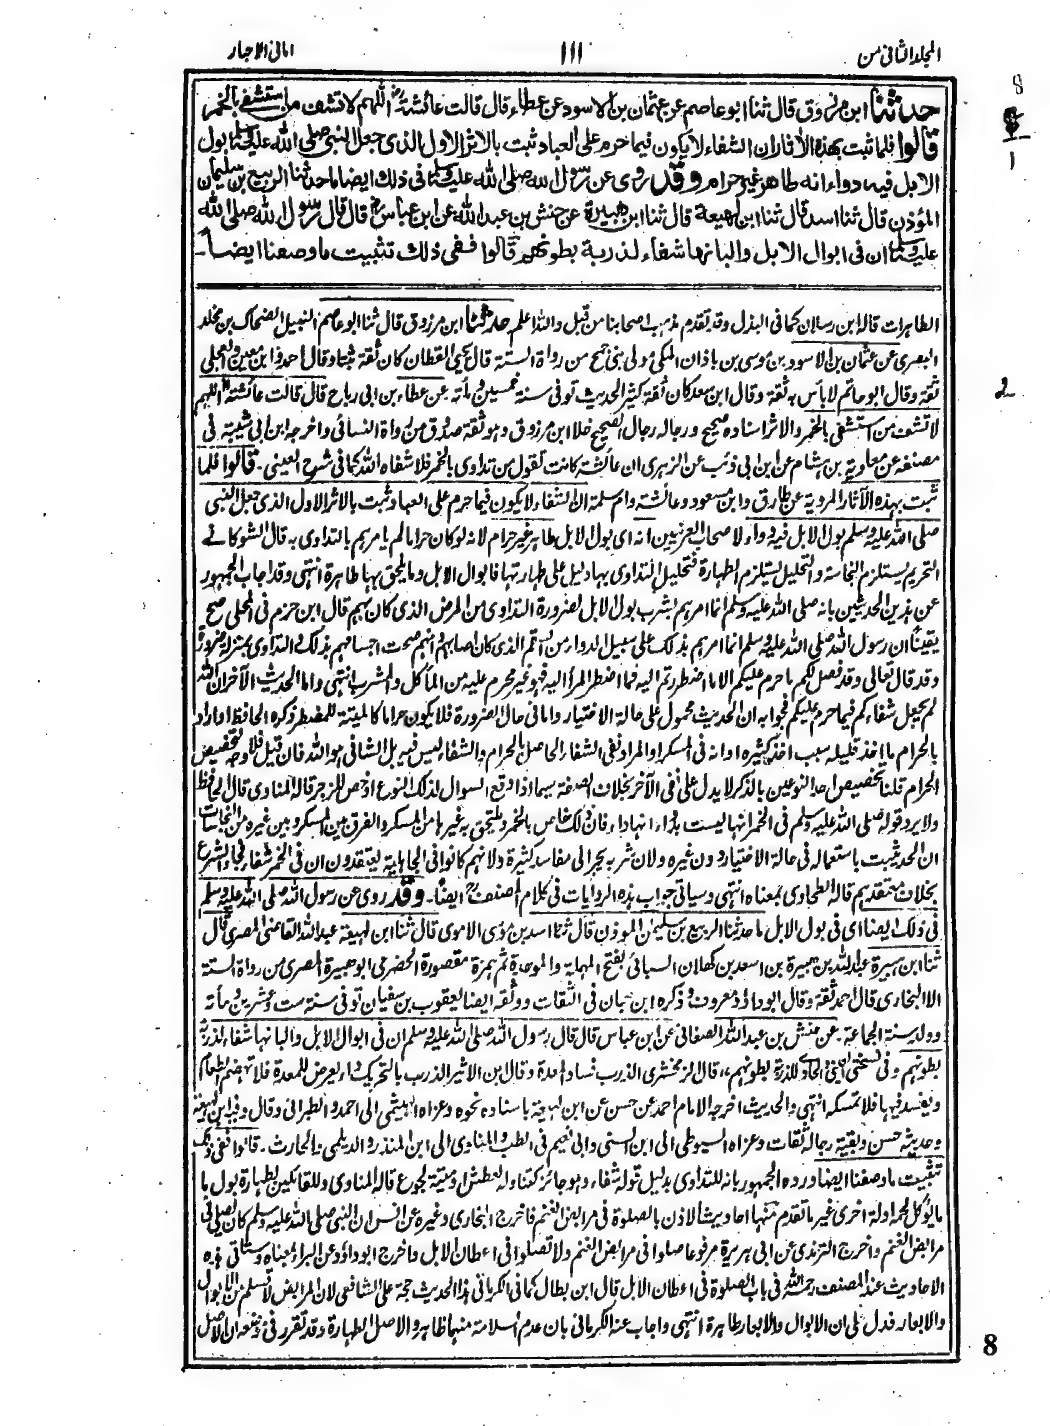 المجلد الثاني من
١١١
اماني الاحبار
حدثنا ابن مرزوق قال ثنا ابو عاصم عن عثمان بن الاسود عن عطاء قال قالت عائشة اللهم لا تشف من استشفى بالخمر
قالوا فلما ثبت بهذه الآثار ان الشفاء لا يكون فيما حرم على العباد ثبت بالاثر الاول الذي جعل النبي صلى الله عليه وسلم بول
الابل فيه دواء انه طاهر غير حرام وقد روى عن رسول الله صلى الله عليه وسلم في ذلك ايضا ما حدثنا الربيع بن سليمان
المؤذن قال ثنا اسد قال ثنا ابن لهيعة قال ثنا ابن هبيرة عن حنش بن عبد الله عن ابن عباس قال قال رسول الله صلى الله
عليه وسلم ان في ابوال الابل والبانها شفاء لذربة بطونهم قالوا ففي ذلك تثبيت ما وصفنا ايضاً-
الطاهرات قاله ابن رسلان كما في البذل وقد تقدم مذهب اصحابنا من قبل والله اعلم حدثنا ابن مرزوق قال ثنا ابو عاصم النبيل الضحاك بن مخلد
البصري عن عثمان بن الاسود بن موسى بن باذان المكي مولى بني جمح من رواة الستة قال يحيى القطان كان ثقة ثبتا وقال احمد وابن معين والعجلي
ثقة وقال ابو حاتم لا بأس به ثقة وقال ابن سعد كان ثقة كثير الحديث توفي سنة خمسين ومأته عن عطاء بن ابي رباح قال قالت عائشة اللهم
لا تشف من استشفى بالخمر والاثر اسناده صحيح ورجاله رجال الصحيح خلا ابن مرزوق وهو ثقة صدوق من رواة النسائي واخرجه ابن ابي شيبة في
مصنفه عن معاوية بن هشام عن ابن ابي ذئب عن الزهري ان عائشة كانت تقول من تداوى بالخمر فلا شفاه الله كما في شرح العيني - قالوا فلما
ثبت بهذه الآثار المروية عن طارق وابن مسعود وعائشة وام سلمة ان الشفاء لا يكون فيما حرم على العباد ثبت بالاثر الاول الذي جعل النبي
صلى الله عليه وسلم بول الابل فيه دواء لاصحاب العرنيين انه اي بول الابل طاهر غير حرام لانه لو كان حراما لم يامرهم بالتداوي به قال الشوكاني
التحريم يستلزم النجاسة والتحليل يستلزم الطهارة فتحليل التداوي بها دليل على طهارتها فابوال الابل وما يلحق بها طاهرة انتهى وقد اجاب الجمهور
عن هذين الحديثين بانه صلى الله عليه وسلم انما امرهم بشرب بول الابل لضرورة التداوي من المرض الذي كان بهم قال ابن حزم في المحلى صح
يقيناً ان رسول الله صلى الله عليه وسلم انما امرهم بذلك على سبيل الدواء من السقم الذي كان اصابهم وانهم صحت اجسامهم بذلك والتداوي بمنزلة ضرورة
وقد قال تعالى وقد فصل لكم ما حرم عليكم الا ما اضطررتم اليه فما اضطر المرأ اليه فهو غير محرم عليه من المأكل والمشرب انتهى واما الحديث الآخر ان الله
لم يجعل شفاءكم فيما حرم عليكم فجوابه ان الحديث محمول على حالة الاختيار واما في حال الضرورة فلا يكون حراما كالميتة للمضطر ذكره الحافظ او اراد
بالحرام ما اخذ قليله سبب اخذ كثيره او انه في المسكر او المراد نفي الشفاء الحاصل بالحرام والشفاء ليس فيه بل الشافي هو الله فان قيل فلا وجه لتخصيص
الحرام قلنا تخصيص احد النوعين بالذكر لا يدل على نفي الآخر بخلاف الصفة سيما اذا وقع السوال لذلك النوع اذ خص للزجر قاله المناوي قال الحافظ
ولا يرد قوله صلى الله عليه وسلم في الخمر انها ليست بدواء انها داء فان ذلك خاص بالخمر ويلتحق به غيرها من المسكر والفرق بين المسكر وبين غيره من النجاسات
ان الحد يثبت باستعماله في حالة الاختيار دون غيره ولان شربه يجر الى مفاسد كثيرة ولانهم كانوا في الجاهلية يعتقدون ان في الخمر شفاء فجاء الشرع
بخلاف معتقدهم قاله الطحاوي بمعناه انتهى وسياتي جواب هذه الروايات في كلام المصنف ايضاً- وقد روى عن رسول الله صلى الله عليه وسلم
في ذلك ايضا اي في بول الابل ما حدثنا الربيع بن سليمان المؤذن قال ثنا اسد بن موسى الاموي قال ثنا ابن لهيعة عبد الله القاضي المصري قال
ثنا ابن هبيرة عبد الله بن هبيرة بن اسعد بن كهلان السبائي بفتح المهملة والموحدة ثم همزة مقصورة الحضرمي ابو هبيرة المصري من رواة الستة
الا البخاري قال احمد ثقة وقال ابو داؤد معروف وذكره ابن حبان في الثقات ووثقه ايضا يعقوب بن سفيان توفي سنة ست وعشرين ومأته
وولد سنة الجماعة - عن حنش بن عبد الله الصنعاني عن ابن عباس قال قال رسول الله صلى الله عليه وسلم ان في ابوال الابل والبانها شفاء لذربة
بطونهم وفي نسختي العيني للذربة بطونهم، قال الزمخشري الذرب فساد المعدة وقال ابن الاثير الذرب بالتحريك داء يعرض للمعدة فلا تهضم الطعام
ويفسد فيها فلا تمسكه انتهى والحديث اخرجه الامام احمد عن حسن عن ابن لهيعة باسناده نحوه وعزاه الهيثمي الى احمد والطبراني وقال وفيه ابن لهيعة
وحديثه حسن وبقية رجاله ثقات وعزاه السيوطي الى ابن السني وابي نعيم في الطب والمناوي الى ابن المنذر والديلمي والحارث - قالوا ففي ذلك
تثبيت ما وصفنا ايضا ورده الجمهور بانه للتداوي بدليل قوله شفاء وهو جائز كتناوله لعطش وميتة لجوع قاله المناوي وللقائلين بطهارة بول ما
مايؤكل لحمه ادلة اخرى غير ما تقدم منها احاديث الاذن بالصلوة في مرابض الغنم فاخرج البخاري وغيره عن انس ان النبي صلى الله عليه وسلم كان يصلي في
مرابض الغنم واخرج الترمذي عن ابي هريرة مرفوعا صلوا في مرابض الغنم ولا تصلوا في اعطان الابل واخرج ابو داؤد عن البراء بمعناه وستاتي هذه
الاحاديث عند المصنف رحمه الله في باب الصلوة في اعطان الابل قال ابن بطال كما في الكرماني هذا الحديث حجة على الشافعي لان المرابض لا تسلم من الابوال
والابعار فدل على ان الابوال والابعار طاهرة انتهى واجاب عنه الكرماني بان عدم السلامة منها ظاهر والاصل الطهارة وقد تقرر في موضعه ان الاصل
8
1
2
8